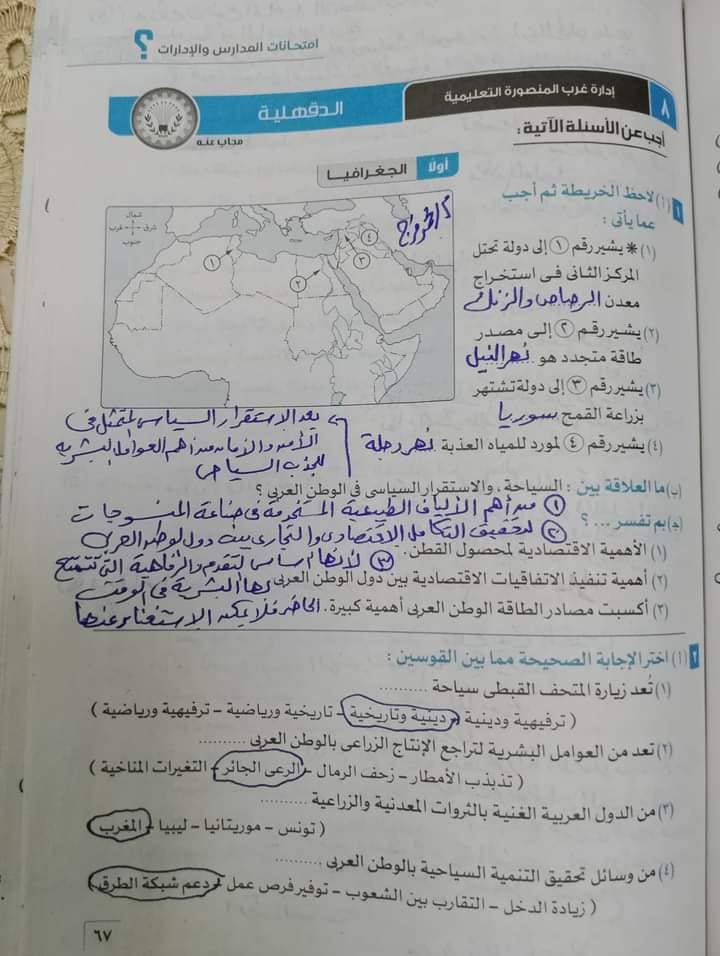 امتحانات المدارس والإدارات ؟
٨ إدارة غرب المنصورة التعليمية
الدقهلية
مجاب عنه
أجب عن الأسئلة الآتية :
أولًا الجغرافيا
١ (أ) لاحظ الخريطة ثم أجب
عما يأتى :
شمال
شرق غرب
جنوب
١
٢
٣
٤
(١) * يشير رقم ① إلى دولة تحتل
المركز الثانى فى استخراج
معدن الرصاص والزنك
(٢) يشير رقم ② إلى مصدر
طاقة متجدد هو نهر النيل
(٣) يشير رقم ③ إلى دولة تشتهر
بزراعة القمح سوريا
(٤) يشير رقم ④ لمورد للمياه العذبة نهر دجلة
يعد الاستقرار السياسى المتمثل فى
الأمن والأمان من أهم العوامل البشرية
للجذب السياحى
(ب) ما العلاقة بين : السياحة ، والاستقرار السياسى فى الوطن العربى ؟
① من أهم الألياف الطبيعية المستخدمة فى صناعة المنسوجات
(ج) بم تفسر ... ؟
② لتحقيق التكامل الاقتصادى والتجارى بين دول الوطن العربى
(١) الأهمية الاقتصادية لمحصول القطن.
③ لأنها أساسى لتقدم والرفاهية التى تتمتع
(٢) أهمية تنفيذ الاتفاقيات الاقتصادية بين دول الوطن العربى
بها البشرية فى الوقت
(٣) أكسبت مصادر الطاقة الوطن العربى أهمية كبيرة.
الحاضر فلا يمكن الاستغناء عنها
٢ (أ) اختر الإجابة الصحيحة مما بين القوسين :
(١) تُعد زيارة المتحف القبطى سياحة ..........
( ترفيهية ودينية – دينية وتاريخية – تاريخية ورياضية – ترفيهية ورياضية )
(٢) تعد من العوامل البشرية لتراجع الإنتاج الزراعى بالوطن العربى ..........
( تذبذب الأمطار – زحف الرمال – الرعى الجائر – التغيرات المناخية )
(٣) من الدول العربية الغنية بالثروات المعدنية والزراعية ..........
( تونس – موريتانيا – ليبيا – المغرب )
(٤) من وسائل تحقيق التنمية السياحية بالوطن العربى ..........
( زيادة الدخل – التقارب بين الشعوب – توفير فرص عمل – دعم شبكة الطرق )
٦٧